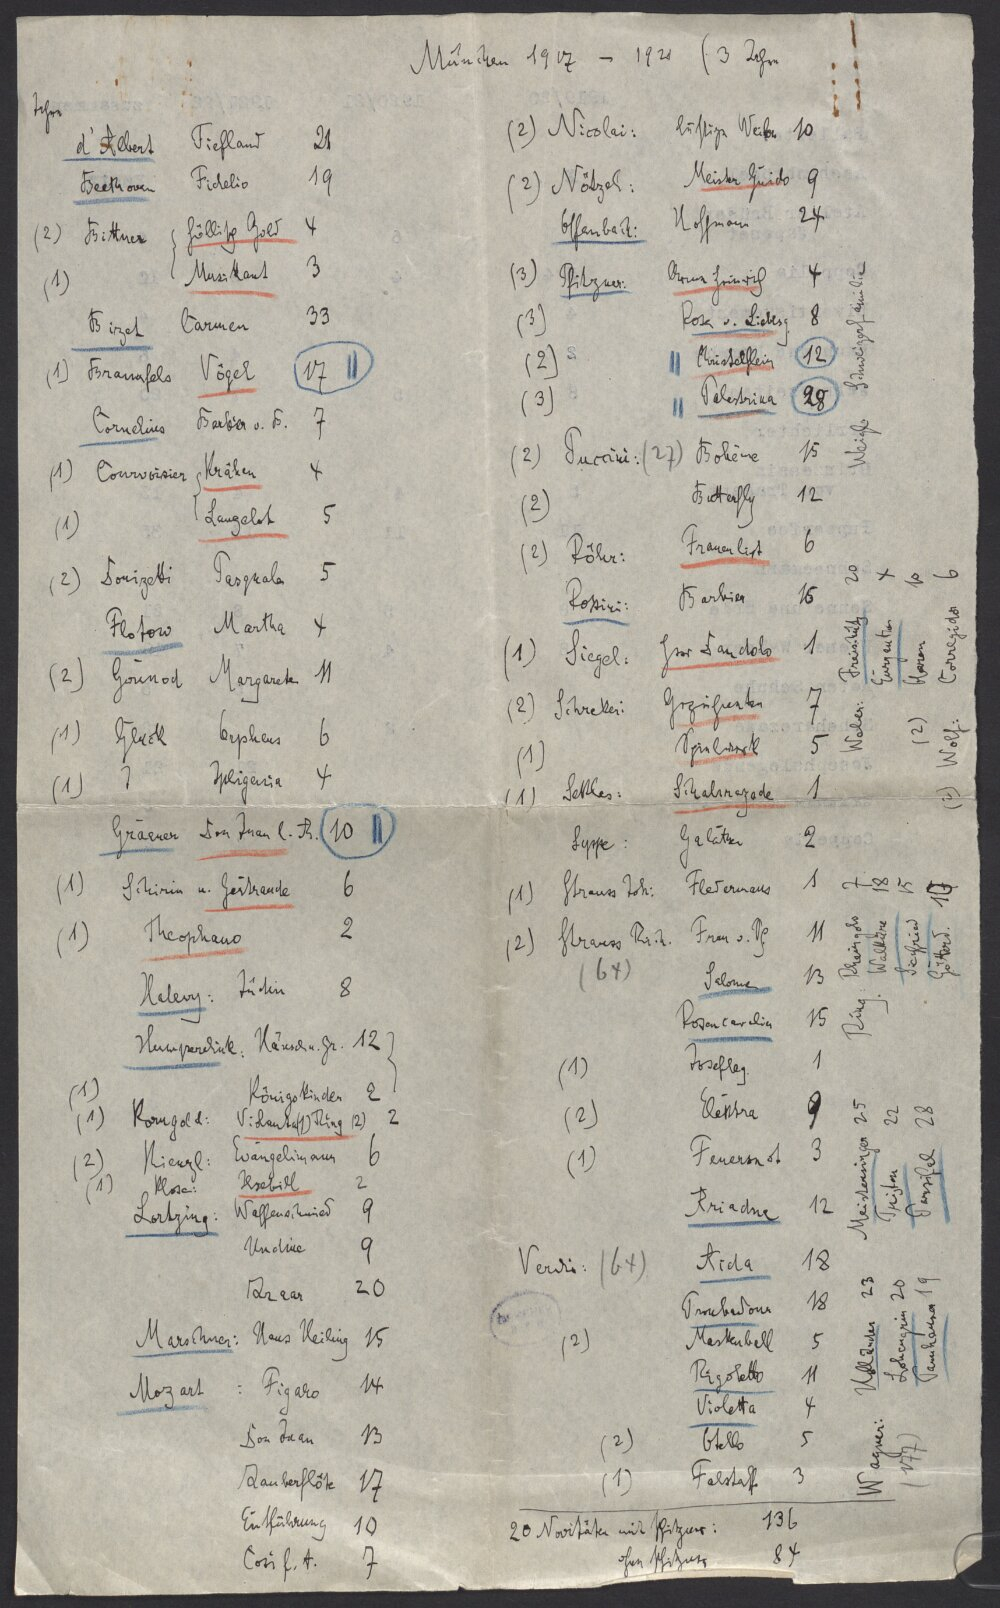 München 1917 - 1920 (3 Jahre
Jahre
d'Albert Tiefland 21
Beethoven Fidelio 19
(2) Bittner Höllisch Gold 4
(1) Musikant 3
Bizet Carmen 33
(1) Braunfels Vögel 17
Cornelius Barbier v. B. 7
(1) Courvoisier Krähen 4
(1) Lanzelot 5
(2) Donizetti Pasquale 5
Flotow Martha 4
(2) Gounod Margarete 11
(1) Gluck Orpheus 6
(1) " Iphigenia 4
Gräener Don Juan l. A. 10
(1) Schirin u. Gertraude 6
(1) Theophano 2
Halevy: Jüdin 8
Humperdink: Hänsel u. Gr. 12
(1) Königskinder 2
(1) Korngold: Violanta (1) Ring (2) 2
(2) Kienzl: Evangelimann 6
(1) Klose: Ilsebill 2
Lortzing: Waffenschmied 9
Undine 9
Zaar 20
Marschner: Hans Heiling 15
Mozart: Figaro 14
Don Juan 13
Zauberflöte 17
Entführung 10
Cosi f. t. 7
(2) Nicolai: Lustige Weiber 10
(2) Nötzel: Meister Guido 9
Offenbach: Hoffmann 24
(3) Pfitzner: Arme Heinrich 4
(3) Rose v. Liebesg 8
(2) Christelflein 12
(3) Palestrina 28
(2) Puccini: (27) Bohême 15
(2) Butterfly 12
(2) Röhr: Frauenlist 6
Rossini: Barbier 15
(1) Siegel: Herr Dandolo 1
(2) Schreker: Gezeichneten 7
(1) Spielwerk 5
(1) Sekles: Schahrazade 1
Suppe: Galathee 2
(1) Strauss Joh: Fledermaus 1
(2) Strauss Rich. Frau o. Sch 11
(64) Salome 13
Rosencavalier 15
(1) Josefleg. 1
(2) Elektra 9
(1) Feuersnot 3
Ariadne 12
Verdi: (64) Aida 18
Troubadour 18
(2) Maskenball 5
Rigoletto 11
Violetta 4
(2) Otello 5
(1) Falstaff 3
20 Novitäten mit Pfitzner: 136
ohne Pfitzner 84
Weigl: Schweizerfamilie
Weber: Freischütz 20
Euryanthe 4
(2) Oberon 10
(2) Wolf: Corregidor 6
Ring: Rheingold 7
Walküre 18
Siegfried 15
Götterd. 17
Wagner: Holländer 23 Meistersinger 25
(177) Lohengrin 20 Tristan 22
Tannhäuser 19 Parsifal 28